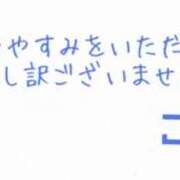 やすみをいただ
し訳ございませ